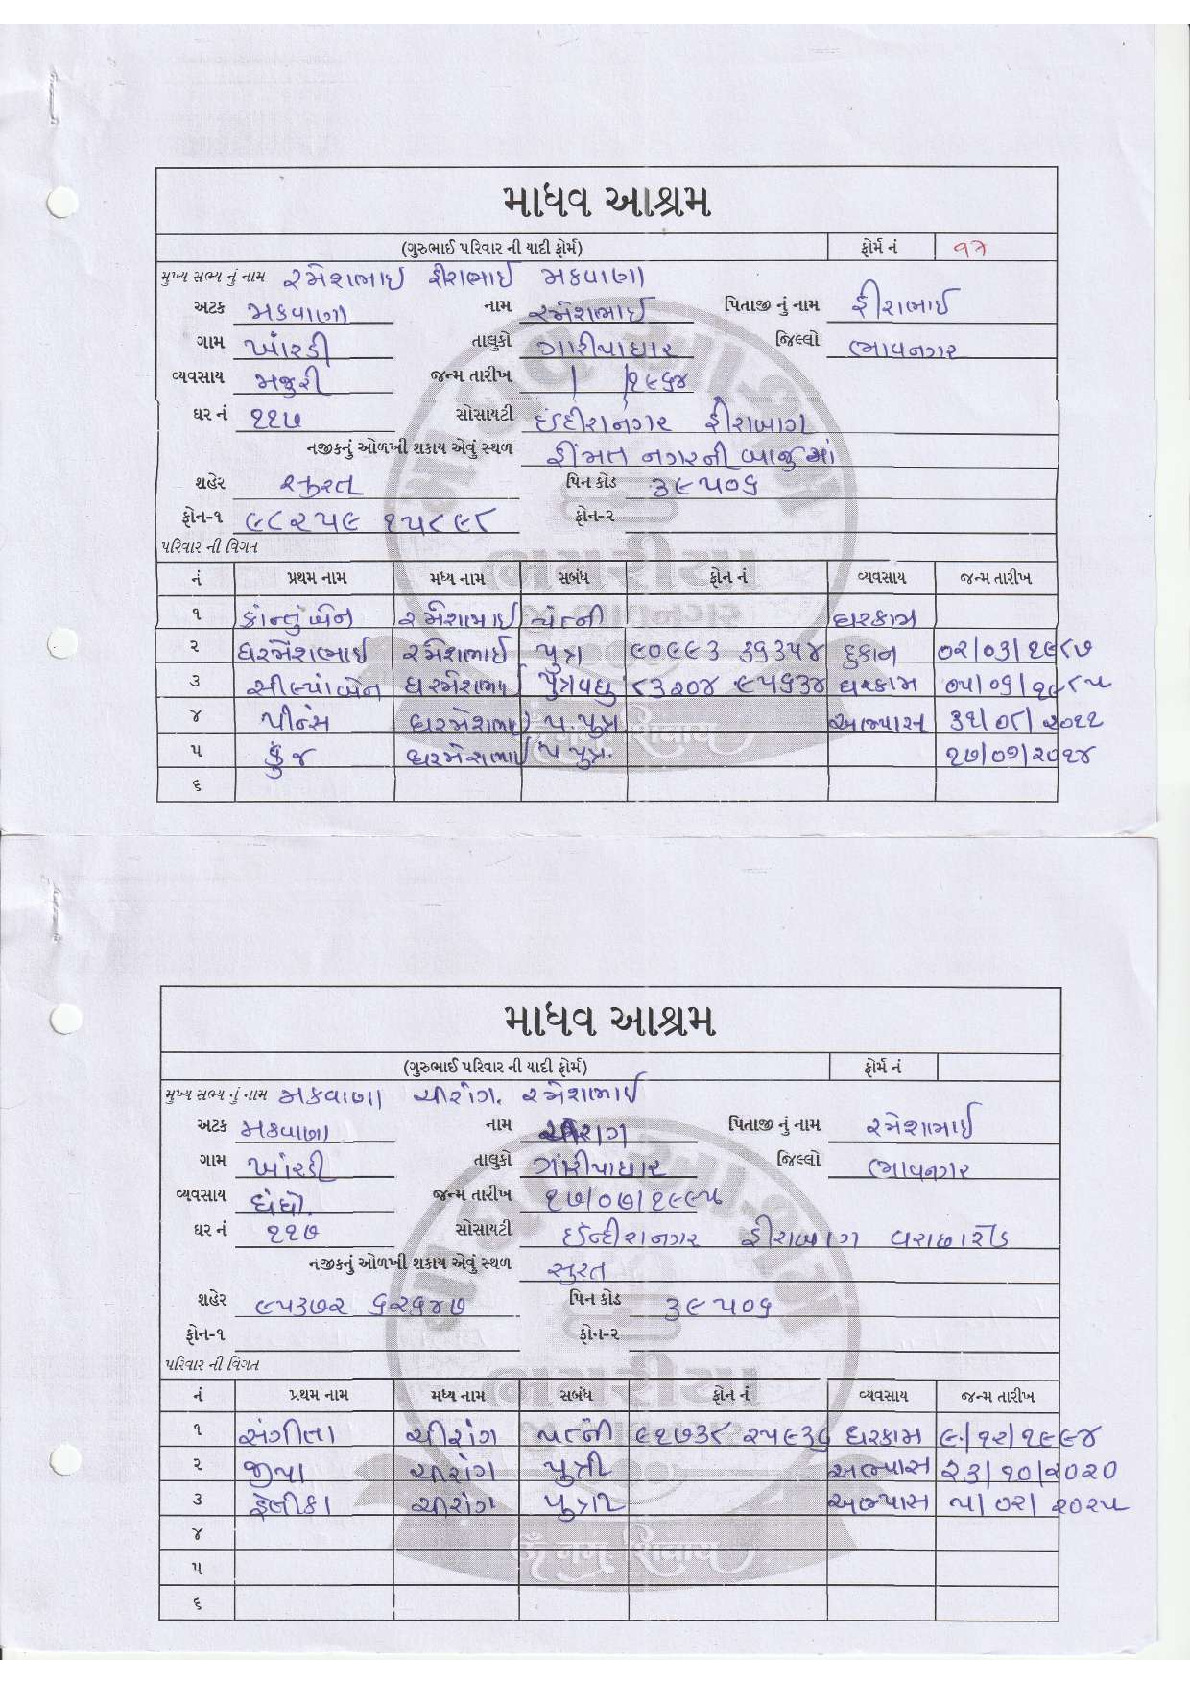 માધવ આશ્રમ
(ગુરુભાઈ પરિવાર ની યાદી ફોર્મ) ફોર્મ નં ૧૭
મુખ્ય સભ્ય નું નામ રમેશભાઈ હીરાભાઈ મકવાણા
અટક મકવાણા નામ રમેશભાઈ પિતાજી નું નામ હીરાભાઈ
ગામ ખારડી તાલુકો ગારીયાધાર જિલ્લો ભાવનગર
વ્યવસાય મજુરી જન્મ તારીખ / /૧૯૬૪
ઘર નં ૧૧૭ સોસાયટી ઈંદીરાનગર હીરાબાગ
નજીકનું ઓળખી શકાય એવું સ્થળ હીંમત નગરની બાજુમાં
શહેર સુરત પિન કોડ ૩૯૫૦૦૬
ફોન-૧ ૯૮૨૫૯ ૧૫૮૯૮ ફોન-૨
પરિવાર ની વિગત
નં પ્રથમ નામ મધ્ય નામ સબંધ ફોન નં વ્યવસાય જન્મ તારીખ
૧ કાન્તુબેન રમેશભાઈ પત્ની ઘરકામ
૨ ધરમેશભાઈ રમેશભાઈ પુત્ર દુકાન ૦૨/૦૩/૧૯૮૭
૩ ધરમેશભાઈ પુત્રવધુ ઘરકામ
૪ પીન્સ ધરમેશભાઈ પ.પુત્ર અભ્યાસ ૩૧/૦૮/૨૦૧૧
૫ કુંજ ધરમેશભાઈ પ પુત્ર. ૧૭/૦૧/૨૦૧૪
૬
માધવ આશ્રમ
(ગુરુભાઈ પરિવાર ની યાદી ફોર્મ) ફોર્મ નં
મુખ્ય સભ્ય નું નામ મકવાણા ચીરાગ. રમેશભાઈ
અટક મકવાણા નામ ચીરાગ પિતાજી નું નામ રમેશભાઈ
ગામ ખારડી તાલુકો ગારીયાધાર જિલ્લો ભાવનગર
વ્યવસાય ધંધો. જન્મ તારીખ ૧૭/૦૭/૧૯૯૫
ઘર નં ૧૧૭ સોસાયટી ઈન્દીરાનગર હીરાબાગ વરાછારોડ
નજીકનું ઓળખી શકાય એવું સ્થળ સુરત
શહેર ૯૫૩૭૨ ૬૨૬૪૭ પિન કોડ ૩૯૫૦૦૬
ફોન-૧ ફોન-૨
પરિવાર ની વિગત
નં પ્રથમ નામ મધ્ય નામ સબંધ ફોન નં વ્યવસાય જન્મ તારીખ
૧ સંગીતા ચીરાગ પત્ની ઘરકામ ૯/૧૨/૧૯૯૪
૨ જીયા ચીરાગ પુત્રી અભ્યાસ ૨૩/૧૦/૨૦૨૦
૩ ચીરાગ પુત્રી અભ્યાસ ૫/૦૨/૨૦૨૫
૪
૫
૬